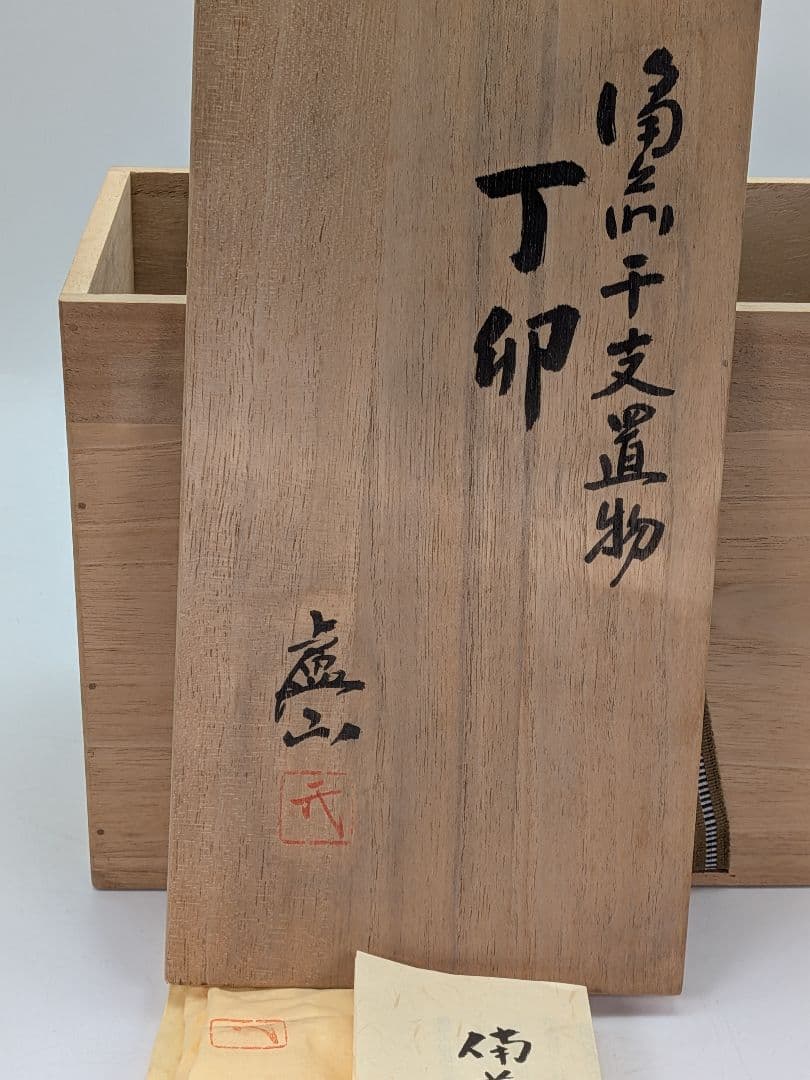 備前干支置物
丁卯
山
備